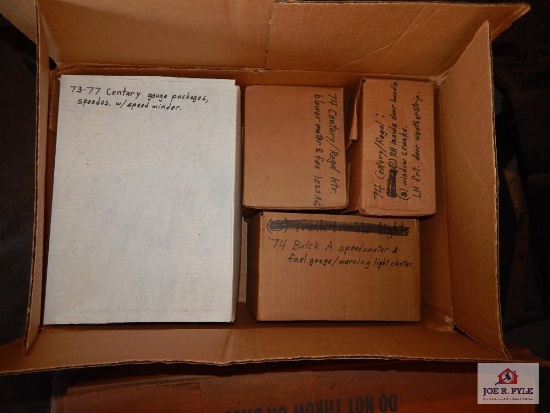 73-77 Century gauge packages,
speedos. w/speed minder.
74 Century/Regal htr.
blower motor & fan less AC
74 Century/Regal:
RH inside door handle
window cranks.
LH frt. door weatherstrip.
'74 Buick A speedometer &
fuel gauge/warning light cluster.
DO NOT THROW OR
JOE R. PYLE